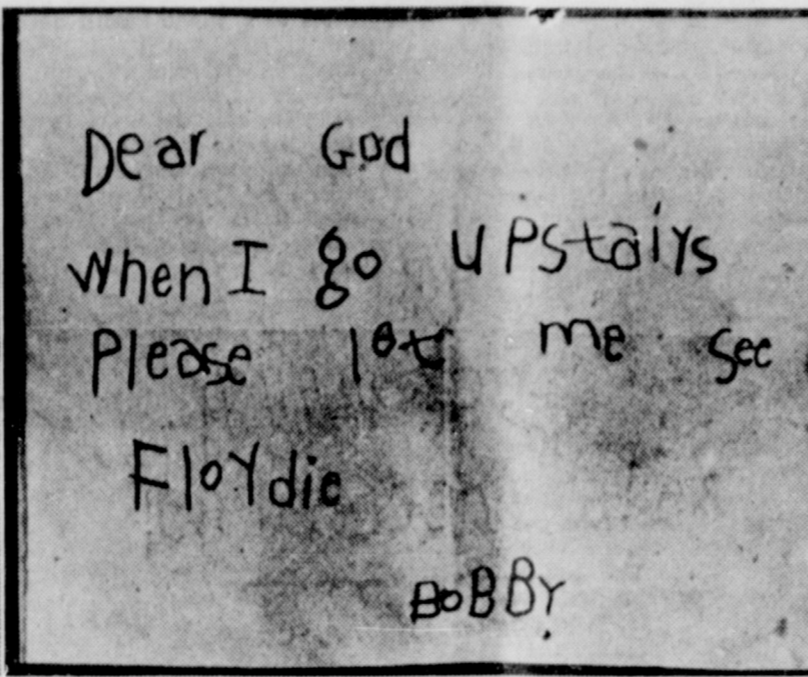 Dear God
When I go upstairs
Please let me see
Floydie
BOBBY